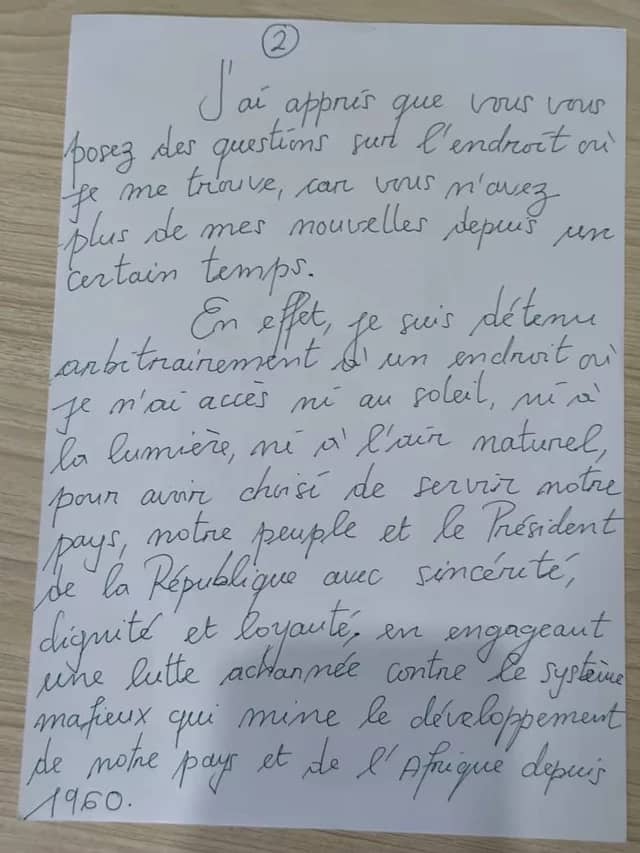 2
J'ai appris que vous vous
posez des questions sur l'endroit où
je me trouve, car vous n'avez
plus de mes nouvelles depuis un
certain temps.
En effet, je suis détenu
arbitrairement à un endroit où
je n'ai accès ni au soleil, ni à
la lumière, ni à l'air naturel,
pour avoir choisi de servir notre
pays, notre peuple et le Président
de la République avec sincérité,
dignité et loyauté, en engageant
une lutte acharnée contre le système
mafieux qui mine le développement
de notre pays et de l'Afrique depuis
1960.